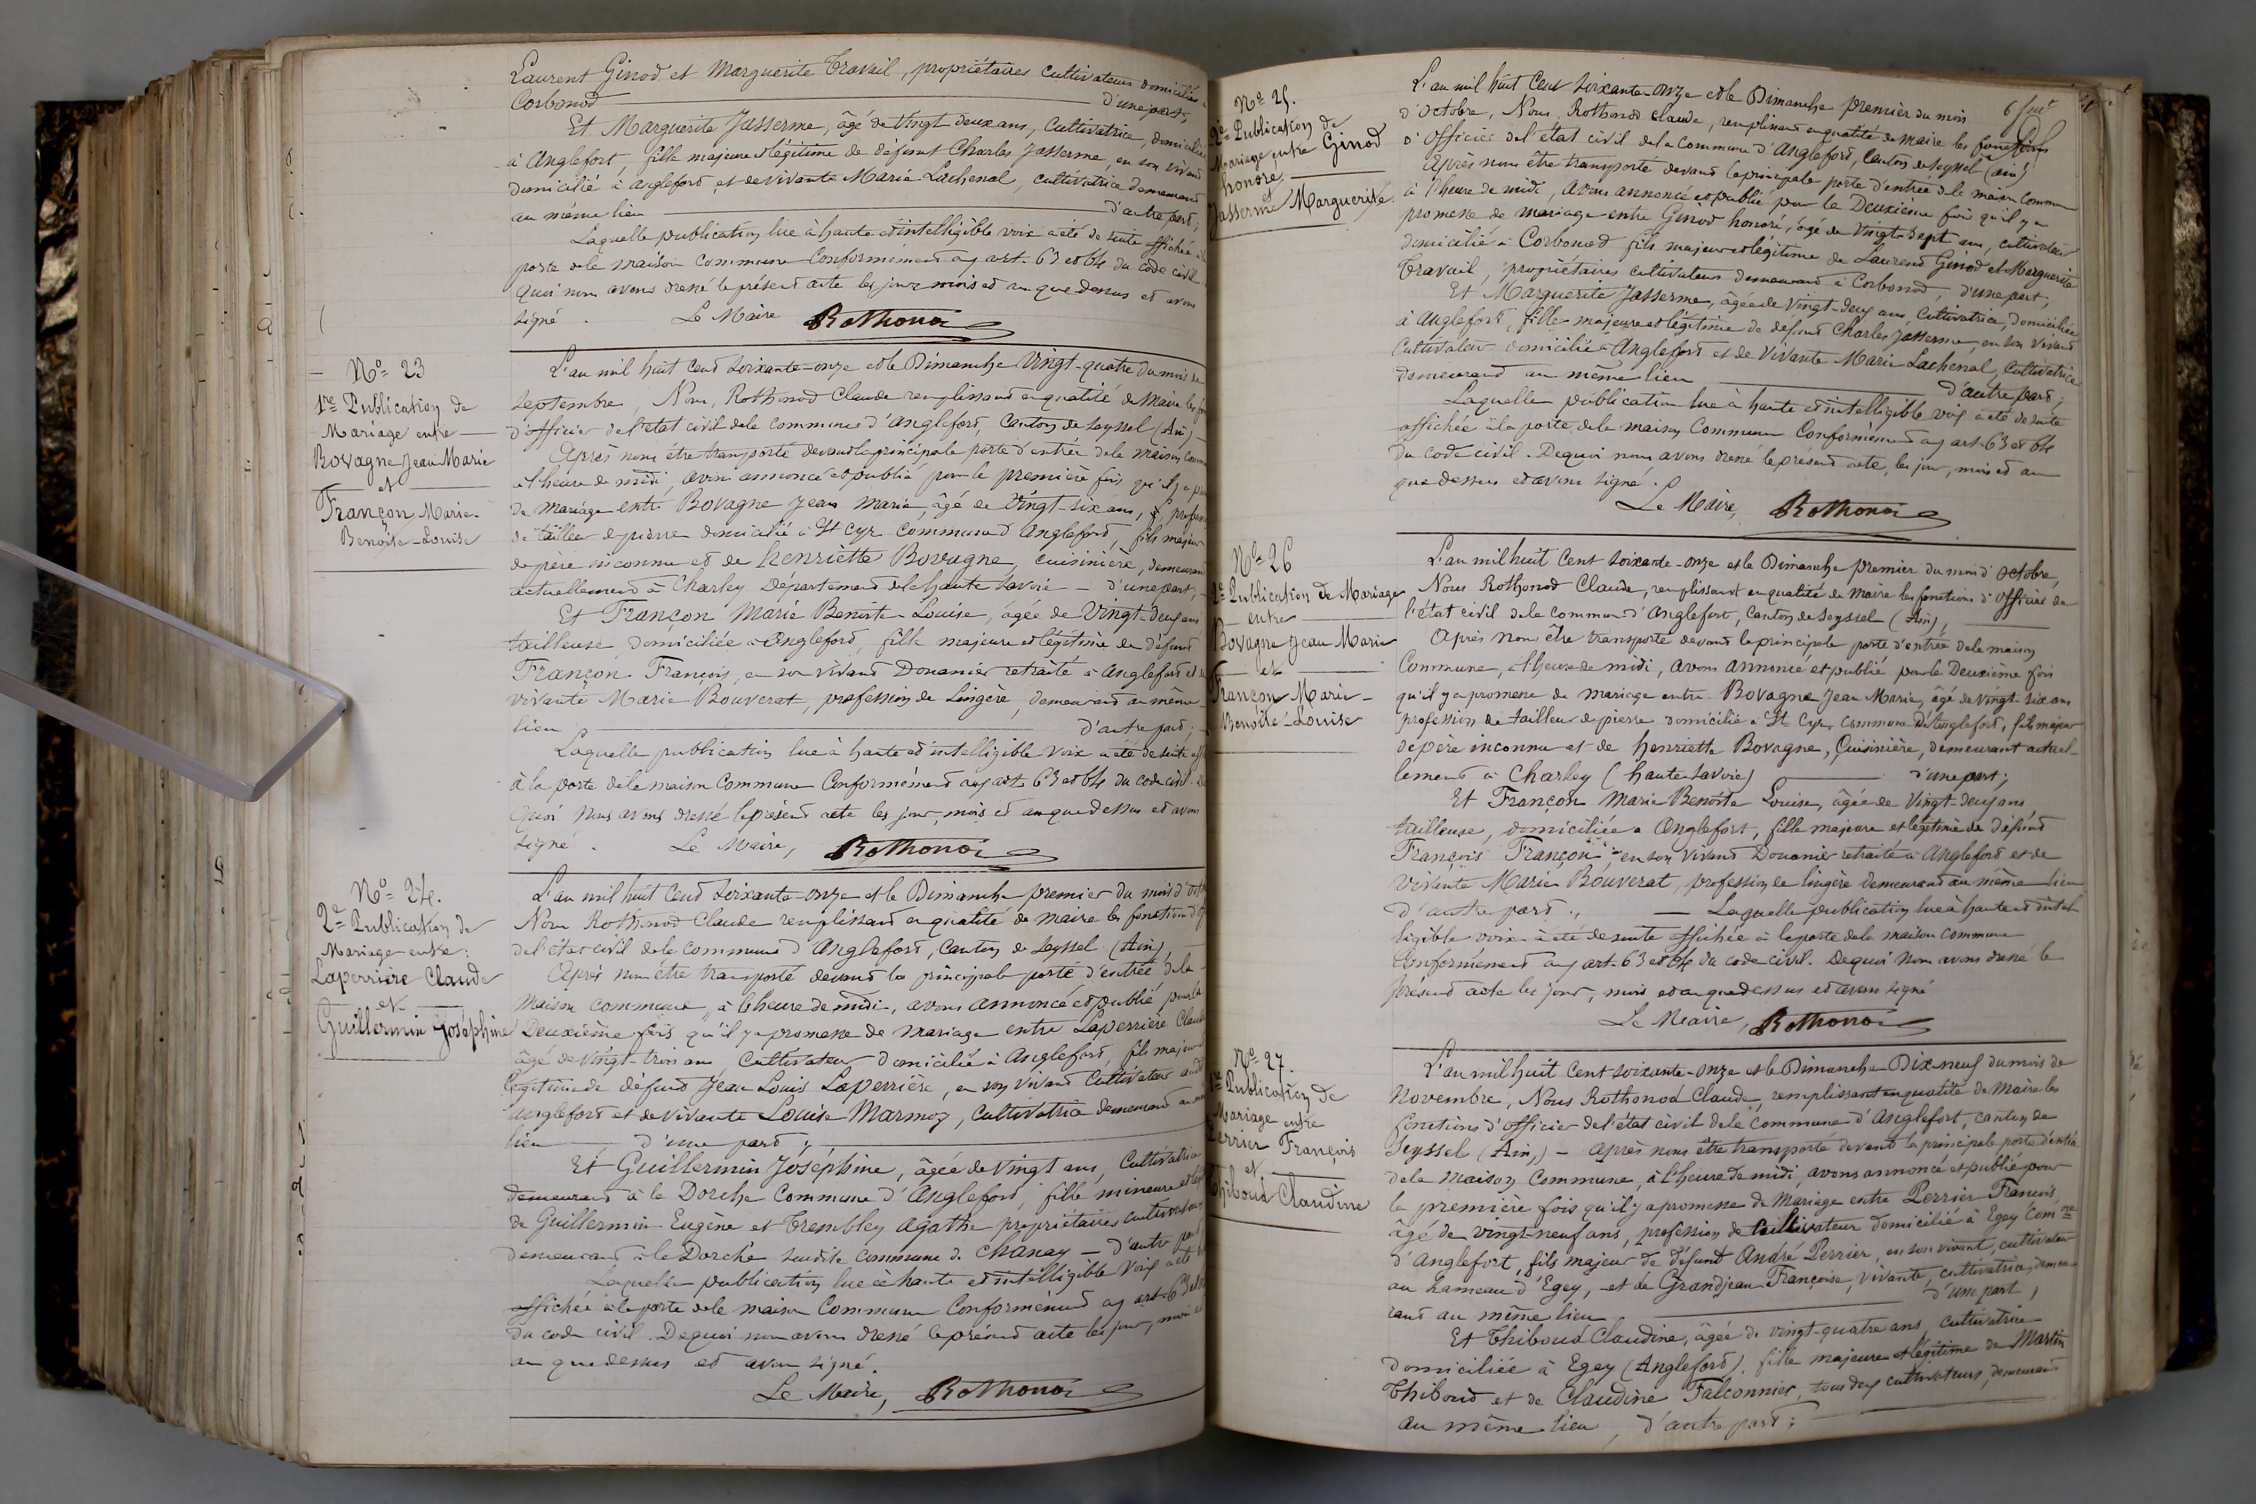 Laurent Ginod et Marguerite Travail, propriétaires cultivateurs domiciliés à
Corbonod d'une part,
Et Marguerite Jasserme, âgé de vingt deux ans, Cultivatrice, domiciliée
à Anglefort, fille majeure et légitime de défunt Charles Jasserme, en son vivant
domicilié à anglefort et de vivante Marie Lachenal, cultivatrice demeurant
au même lieu d'autre part;
Laquelle publication lue à haute et intelligible voix a été de suite affichée à la
porte de la maison commune Conformément aux art. 63 et 64 du code civil.
quoi nous avons dressé le présent acte les jour mois et an que dessus et avons
signé. Le Maire Rothonod
No 23
1re Publication de
Mariage entre
Bovagne Jean Marie
et
Françon Marie-
Benoite-Louise
L'an mil huit cent soixante-onze et le Dimanche Vingt-quatre du mois de
septembre, Nous, Rothonod Claude remplissant en qualité de Maire les
d'officier de l'état civil de la commune d'Anglefort, Canton de Seyssel (Ain)
Après nous être transporté devant la principale porte d'entrée de la maison
à l'heure de midi, avons annoncé et publié pour la première fois qu'il y a
de Mariage entre Bovagne Jean Marie, âgé de vingt-six ans,
de tailleur de pierre domicilié à St Cyr commune d'Anglefort, fils majeur
de père inconnu et de henriette Bovagne, cuisinière, demeurant
actuellement à Charley Département de la haute Savoie - d'une part,
Et Françon Marie Benoite-Louise, âgée de Vingt-deux ans
tailleuse, domiciliée à Anglefort, fille majeure et légitime de défunt
Françon François, en son vivant Douanier retraité à anglefort et de
vivante Marie Bouverat, profession de Lingère, demeurant au même
lieu, d'autre part;
Laquelle publication lue à haute et intelligible voix a été de suite
à la porte de la maison Commune Conformément aux art. 63 et 64 du code civil. De
quoi nous avons dressé le présent acte les jour, mois et an que dessus et avons
signé. Le Maire, Rothonod
No 24.
2e Publication de
Mariage entre:
Laperrière Claude
et
Guillermin Joséphine
L'an mil huit cent soixante-onze et le Dimanche premier du mois d'
Nous Rothonod Claude remplissant en qualité de Maire les fonctions
de l'état civil de la commune d'Anglefort, Canton de Seyssel (Ain)
Après nous être transporté devant la principale porte d'entrée de la
maison commune, à l'heure de midi, avons annoncé et publié pour la
Deuxième fois qu'il y a promesse de mariage entre Laperrière Claude
âgé de vingt-trois ans Cultivateur domicilié à Anglefort, fils majeur
légitime de défunt Jean Louis Laperrière, en son vivant Cultivateur
Anglefort et de vivante Louise Marmoz, Cultivatrice demeurant au
lieu d'une part;
Et Guillermin Joséphine, âgée de vingt ans, Cultivatrice
demeurant à la Dorche Commune d'Anglefort, fille mineure et
de Guillermin Eugène et Trembley Agathe propriétaires cultivateurs
demeurant à la Dorche susdite commune de Chanay - d'autre part
Laquelle publication lue à haute et intelligible voix a été
affichée à la porte de la maison Commune Conformément aux art. 63 et
du code civil. De quoi nous avons dressé le présent acte les jour, mois et
an que dessus et avons signé.
Le Maire, Rothonod
No 25.
2e Publication de
Mariage entre Ginod
honoré
et
Jasserme Marguerite
L'an mil huit Cent soixante-onze et le Dimanche premier du mois
d'Octobre, Nous, Rothonod Claude, remplissant en qualité de maire les fonctions
d'Officier de l'état civil de la commune d'Anglefort, Canton de Seyssel (ain)
Après nous être transporté devant la principale porte d'entrée de la maison commune
à l'heure de midi, avons annoncé et publié pour la Deuxième fois qu'il y a
promesse de mariage entre Ginod honoré, âgé de vingt-sept ans, cultivateur
domicilié à Corbonod fils majeur et légitime de Laurent Ginod et Marguerite
Travail, propriétaires cultivateurs demeurant à Corbonod, d'une part;
Et Marguerite Jasserme, âgée de vingt-deux ans, Cultivatrice, domiciliée
à Anglefort, fille majeure et légitime de défunt Charles Jasserme, en son vivant
Cultivateur domicilié à Anglefort et de Vivante Marie Lachenal, Cultivatrice
demeurant au même lieu d'autre part;
Laquelle publication lue à haute et intelligible voix a été de suite
affichée à la porte de la maison Commune Conformément aux art. 63 et 64
du code civil. De quoi nous avons dressé le présent acte, les jour, mois et an
que dessus et avons signé.
Le Maire, Rothonod
No 26
2e Publication de Mariage
entre
Bovagne Jean Marie
et
Françon Marie-
Benoite-Louise
L'an mil huit Cent soixante-onze et le Dimanche premier du mois d'Octobre,
Nous Rothonod Claude, remplissant en qualité de Maire les fonctions d'Officier de
l'état civil de la commune d'Anglefort, Canton de Seyssel (Ain),
Après nous être transporté devant la principale porte d'entrée de la maison
Commune, à l'heure de midi, avons annoncé et publié pour la Deuxième fois
qu'il y a promesse de mariage entre Bovagne Jean Marie, âgé de vingt-six ans
profession de tailleur de pierre domicilié à St Cyr, commune d'Anglefort, fils majeur
de père inconnu et de henriette Bovagne, Cuisinière, demeurant actuel-
lement à Charley (haute Savoie) d'une part;
Et Françon Marie Benoite Louise, âgée de vingt-deux ans,
tailleuse, domiciliée à Anglefort, fille majeure et légitime de défunt
François Françon en son vivant Douanier retraité à Anglefort et de
vivante Marie Bouverat, profession de lingère demeurant au même lieu
d'autre part., - Laquelle publication lue à haute et intel-
ligible voix a été de suite affichée à la porte de la maison commune
Conformément aux art. 63 et 64 du code civil. De quoi nous avons dressé le
présent acte les jour, mois et an que dessus et avons signé
Le Maire, Rothonod
No 27.
1re Publication de
Mariage entre
Perrier François
et
Thiboud Claudine
L'an mil huit Cent soixante-onze et le Dimanche Dix-neuf du mois de
Novembre, Nous Rothonod Claude, remplissant en qualité de Maire les
fonctions d'officier de l'état civil de la commune d'Anglefort, canton de
Seyssel (Ain,) - Après nous être transporté devant la principale porte d'entrée
de la Maison Commune, à l'heure de midi, avons annoncé et publié pour
la première fois qu'il y a promesse de Mariage entre Perrier François,
âgé de vingt-neuf ans, profession de Cultivateur domicilié à Egey Comne
d'Anglefort, fils majeur de défunt André Perrier, en son vivant, cultivateur
au hameau d'Egey, et de Grandjean Françoise, vivante, cultivatrice, demeu-
rant au même lieu d'une part,
Et Thiboud Claudine, âgée de vingt-quatre ans, cultivatrice
domiciliée à Egey (Anglefort), fille majeure et légitime de Martin
Thiboud et de Claudine Falconnier, tous deux cultivateurs, demeurant
au même lieu, d'autre part;